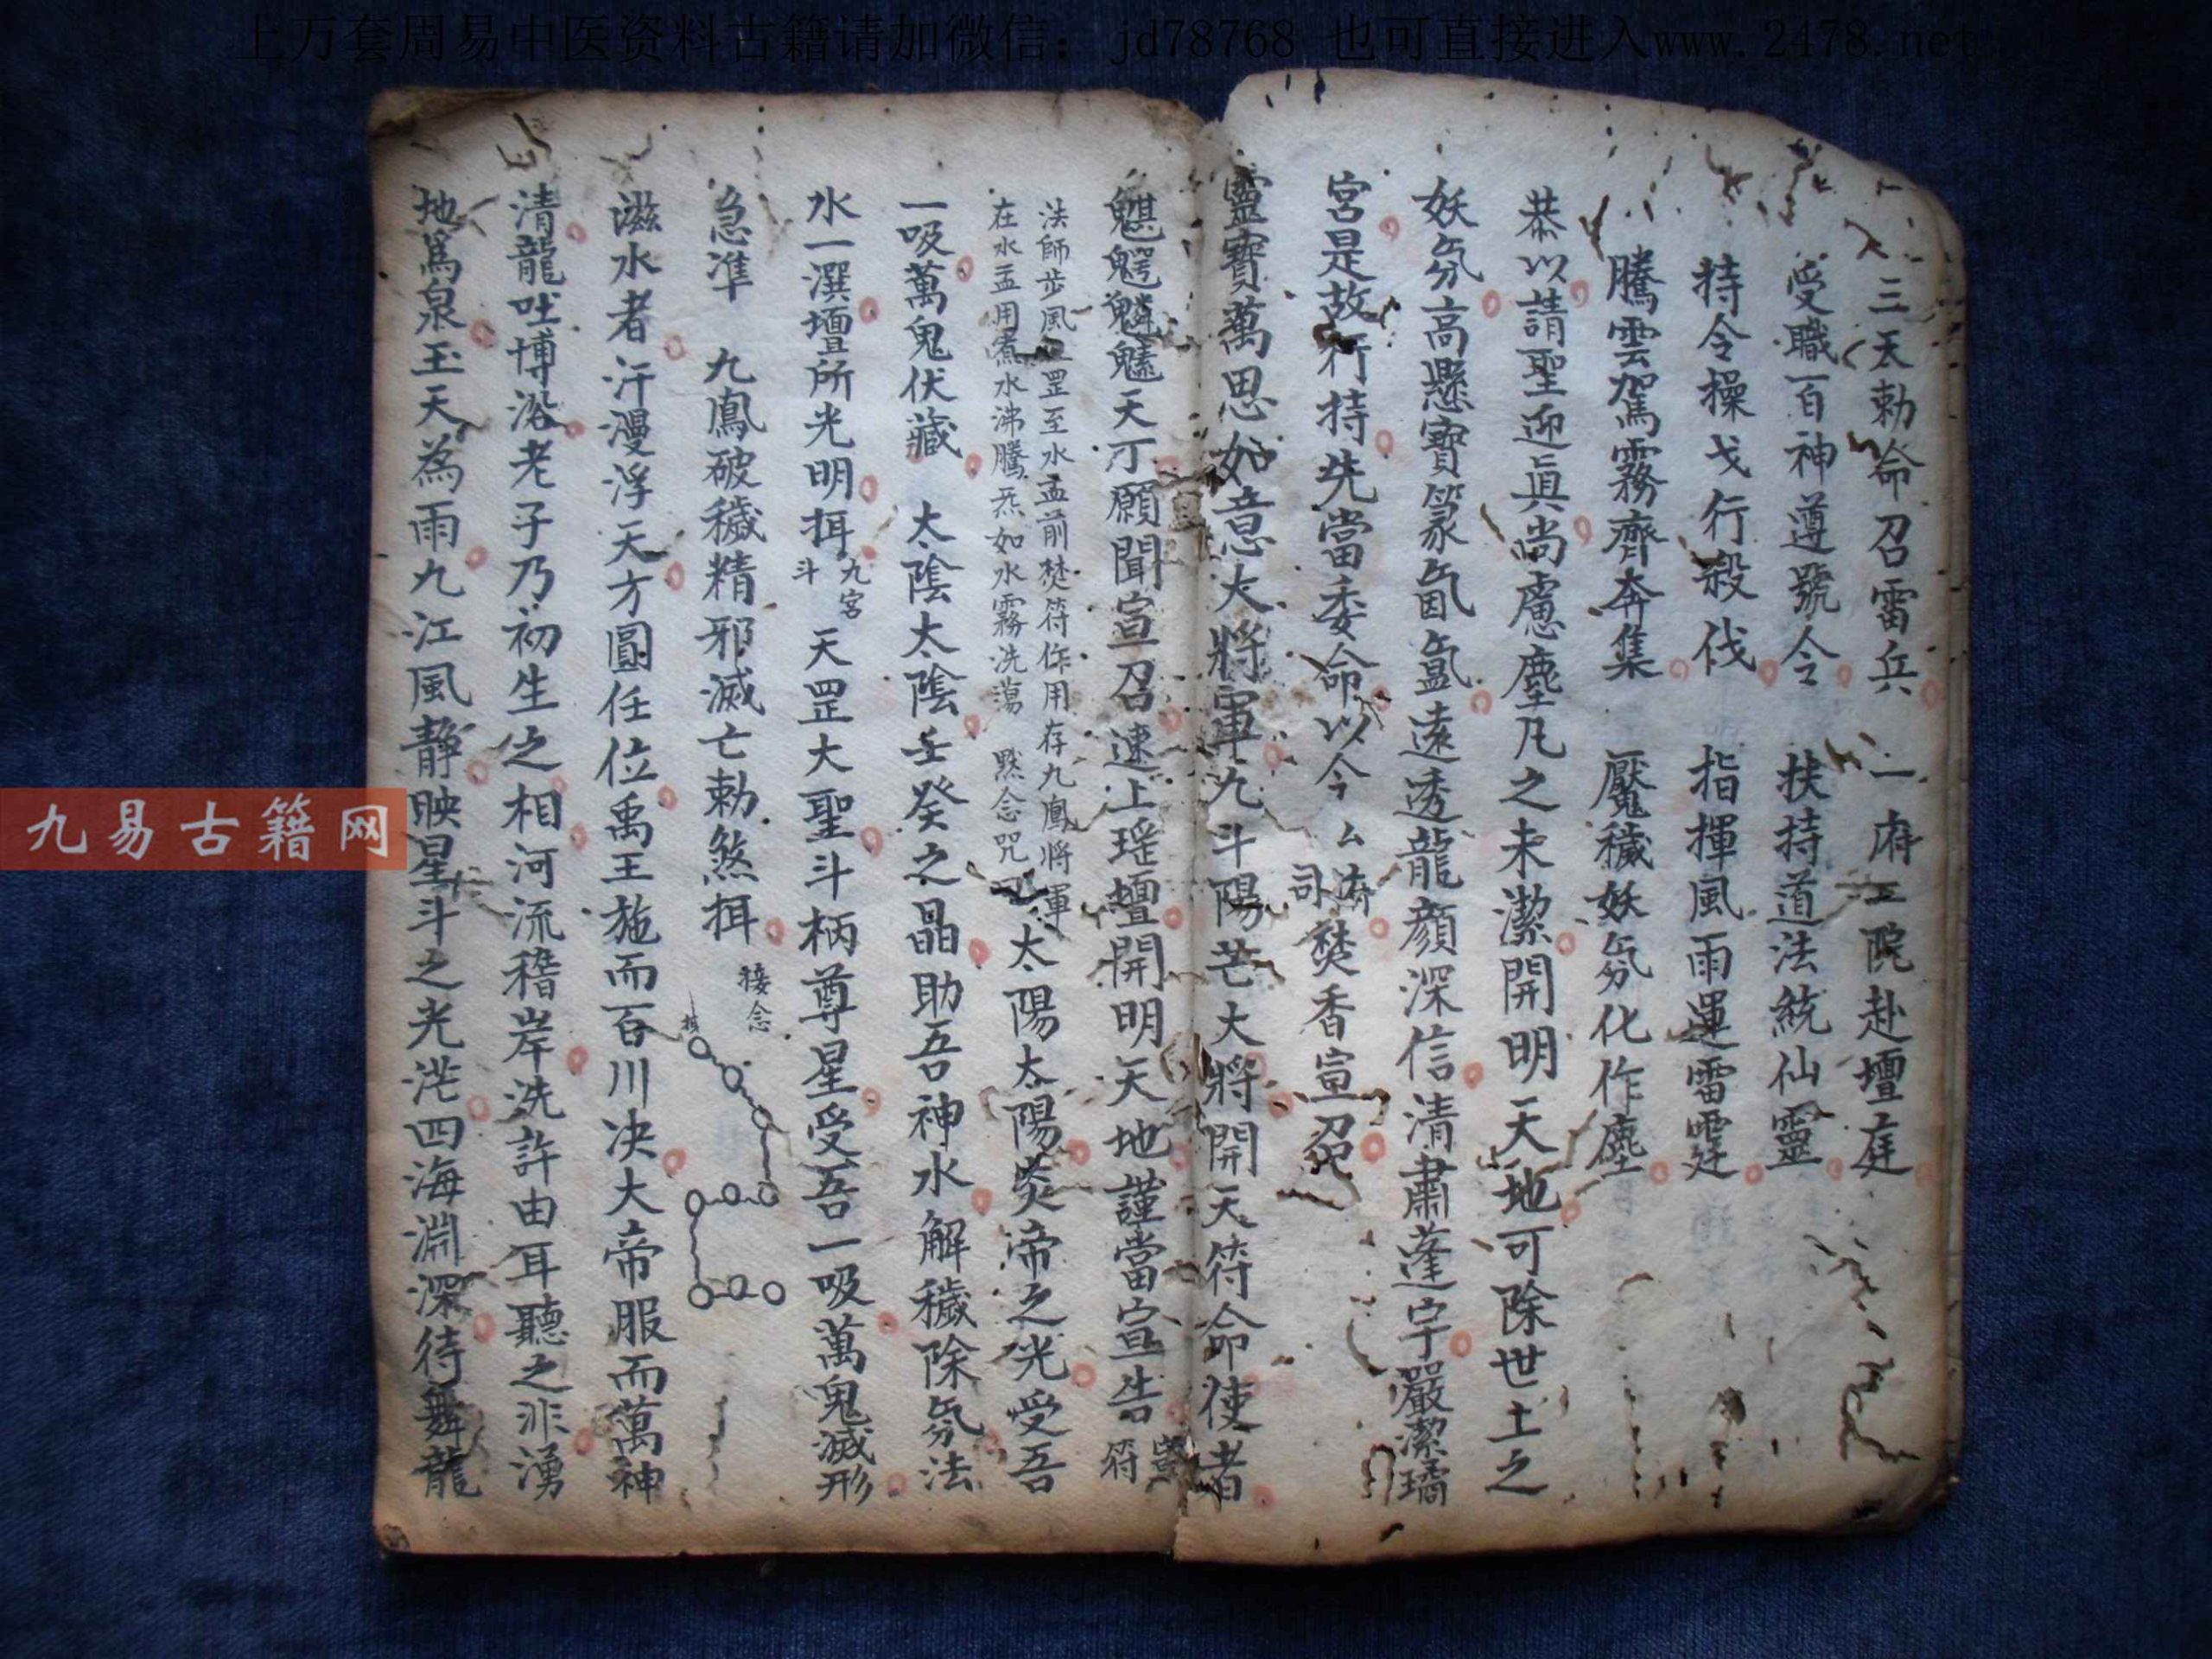 上万套周易中医资料古籍请加微信：jd78768 也可直接进入www.2478.net
三天勅命召雷兵 一府二院赴壇庭
受職百神遵號令 扶持道法統仙靈
持令操戈行殺伐 指揮風雨運雷霆
騰雲駕霧齊奔集 魘穢妖氛化作塵
恭以請聖迎眞尚慮塵凡之未潔開明天地可除世土之
妖氛高懸寶篆氤氳遠透龍顏深信清肅蓬宇嚴潔璚
宮是故行持先當委命以今厶 司 焚香宣召
靈寶萬思如意大將軍九斗陽芒大將開天符命使者
天丁願聞宣召速上瑤壇開明天地謹當宣告 符
法師步風 罡至水盂前焚符作用存九鳳將軍
在水盂用煮水沸騰炁如水霧洗蕩 黙念咒曰
太陽太陽炎帝之光受吾
一吸萬鬼伏藏 太陰太陰壬癸之晶助吾神水解穢除氛法
水一潠壇所光明揖 九宮斗 天罡大聖斗柄尊星受吾一吸萬鬼滅形
急準 九鳳破穢精邪滅亡勅煞揖 接念
滋水者汗漫浮天方圓任位禹王施而百川决大帝服而萬神
清龍吐博浴老子乃初生之相河流稽岸洗許由耳聽之非湧
地爲泉玉天為雨九江風静映星斗之光茫四海淵深待舞龍
九易古籍网